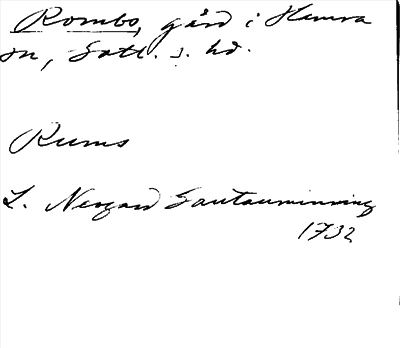 Rombs, gård i Hemra
sn, Gotl. s. hd.
Rums
L. Nergard Gautauminning
1732